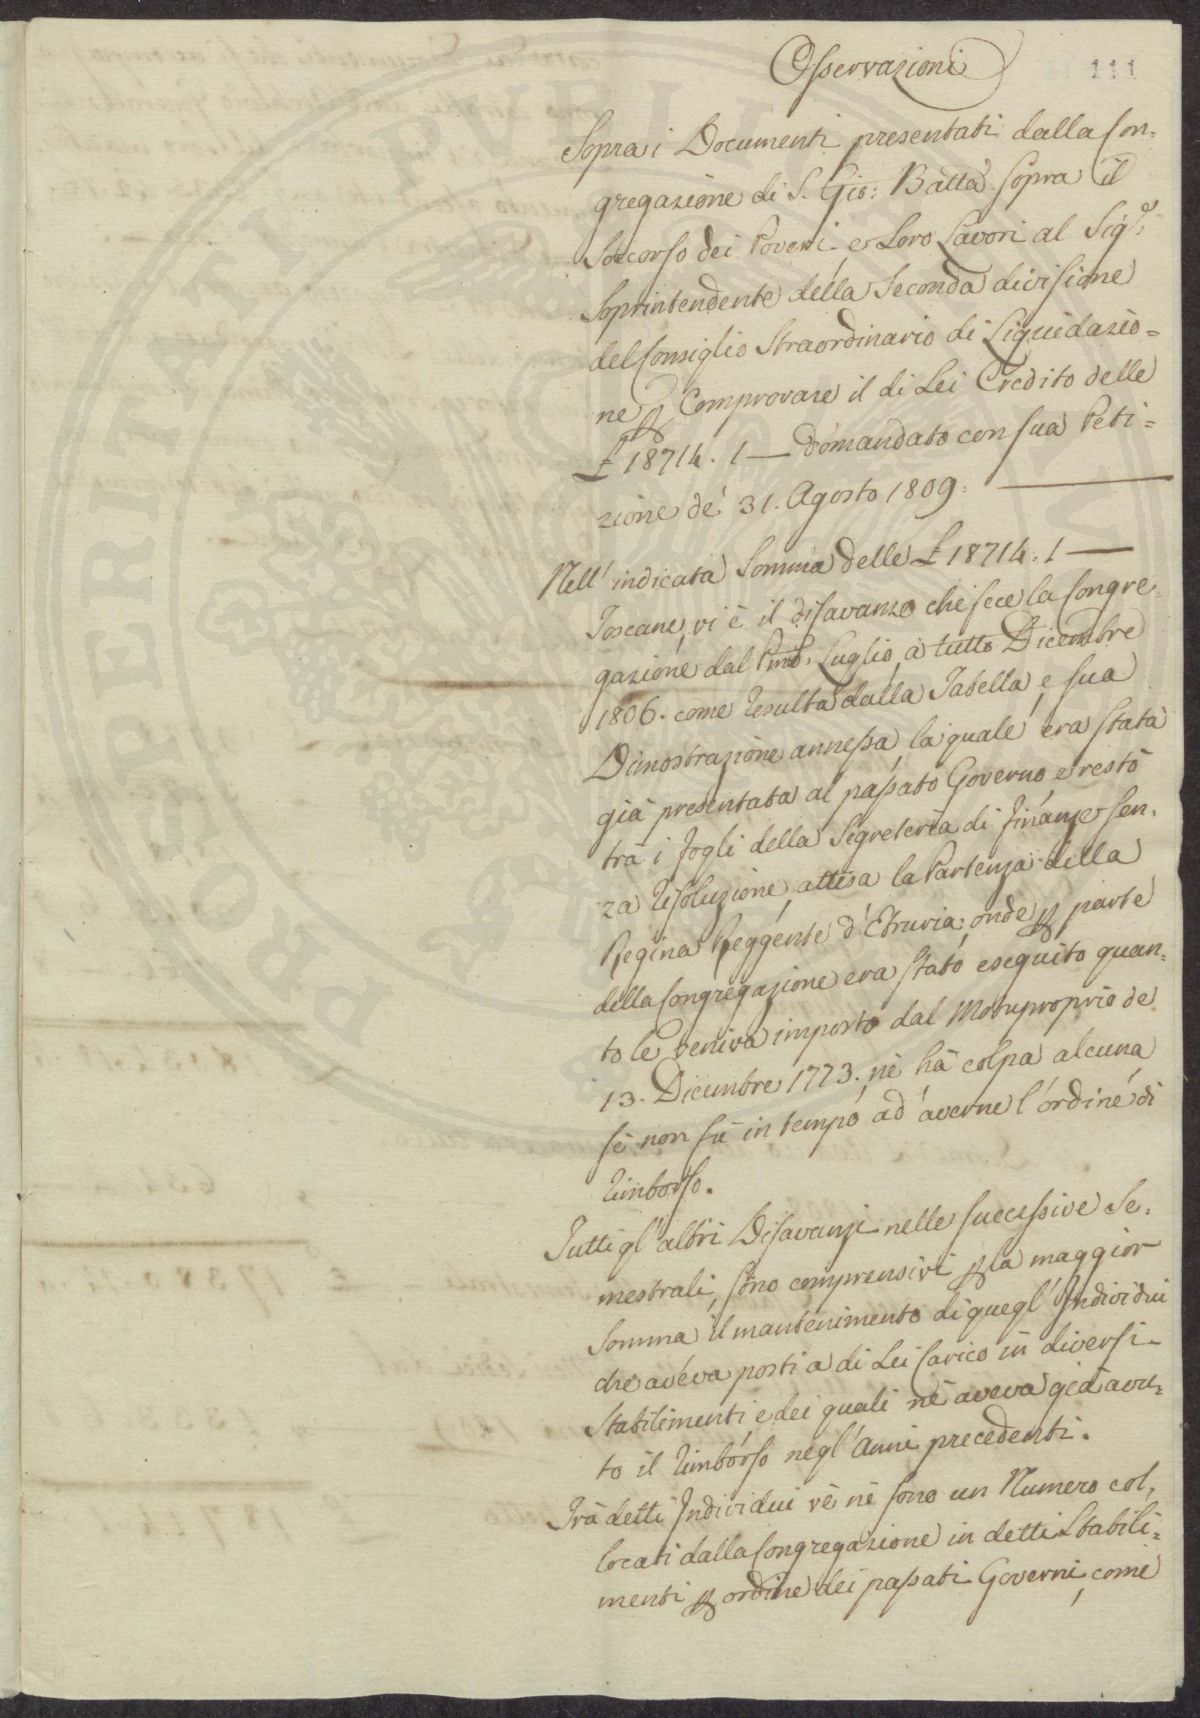 Osservazioni
111
Sopra i Documenti presentati dalla Con=
gregazione di S. Gio: Batta sopra il
Soccorso dei Poveri, e Loro Lavori al Sigr:
Soprintendente della Seconda divisione
del Consiglio Straordinario di Liquidazio=
ne p Comprovare il di Lei Credito delle
£ 18714. 1 — domandato con sua Peti=
zione de' 31. Agosto 1809. —
Nell' indicata Somma delle £ 18714. 1 —
Toscane, vi è il disavanzo che fece la Congre
gazione dal Pmo. Luglio, a tutto Dicembre
1806. come resulta dalla Tabella, e sua
Dimostrazione annessa, la quale era stata
già presentata al passato Governo, e restò
trà i fogli della Segreteria di Finanze sen=
za risoluzione, attesa la Partenza della
Regina Reggente d'Etruria; onde p parte
della Congregazione era stato eseguito quan=
to le veniva imposto dal Motuproprio de
13. Dicembre 1773. nè hà colpa alcuna
sè non fù in tempo ad averne l'ordine di
rimborso.
Tutti gl' altri Disavanzi nelle successive Se=
mestrali, sono comprensivi p la maggior
Somma il mantenimento di quegl' Individui
che aveva posti a di Lei Carico in diversi
Stabilimenti, e dei quali nè aveva già avu=
to il rimborso negl' Anni precedenti.
Trà detti Individui vè nè sono un Numero col=
locati dalla Congregazione in detti Stabili=
menti p ordine dei passati Governi, come